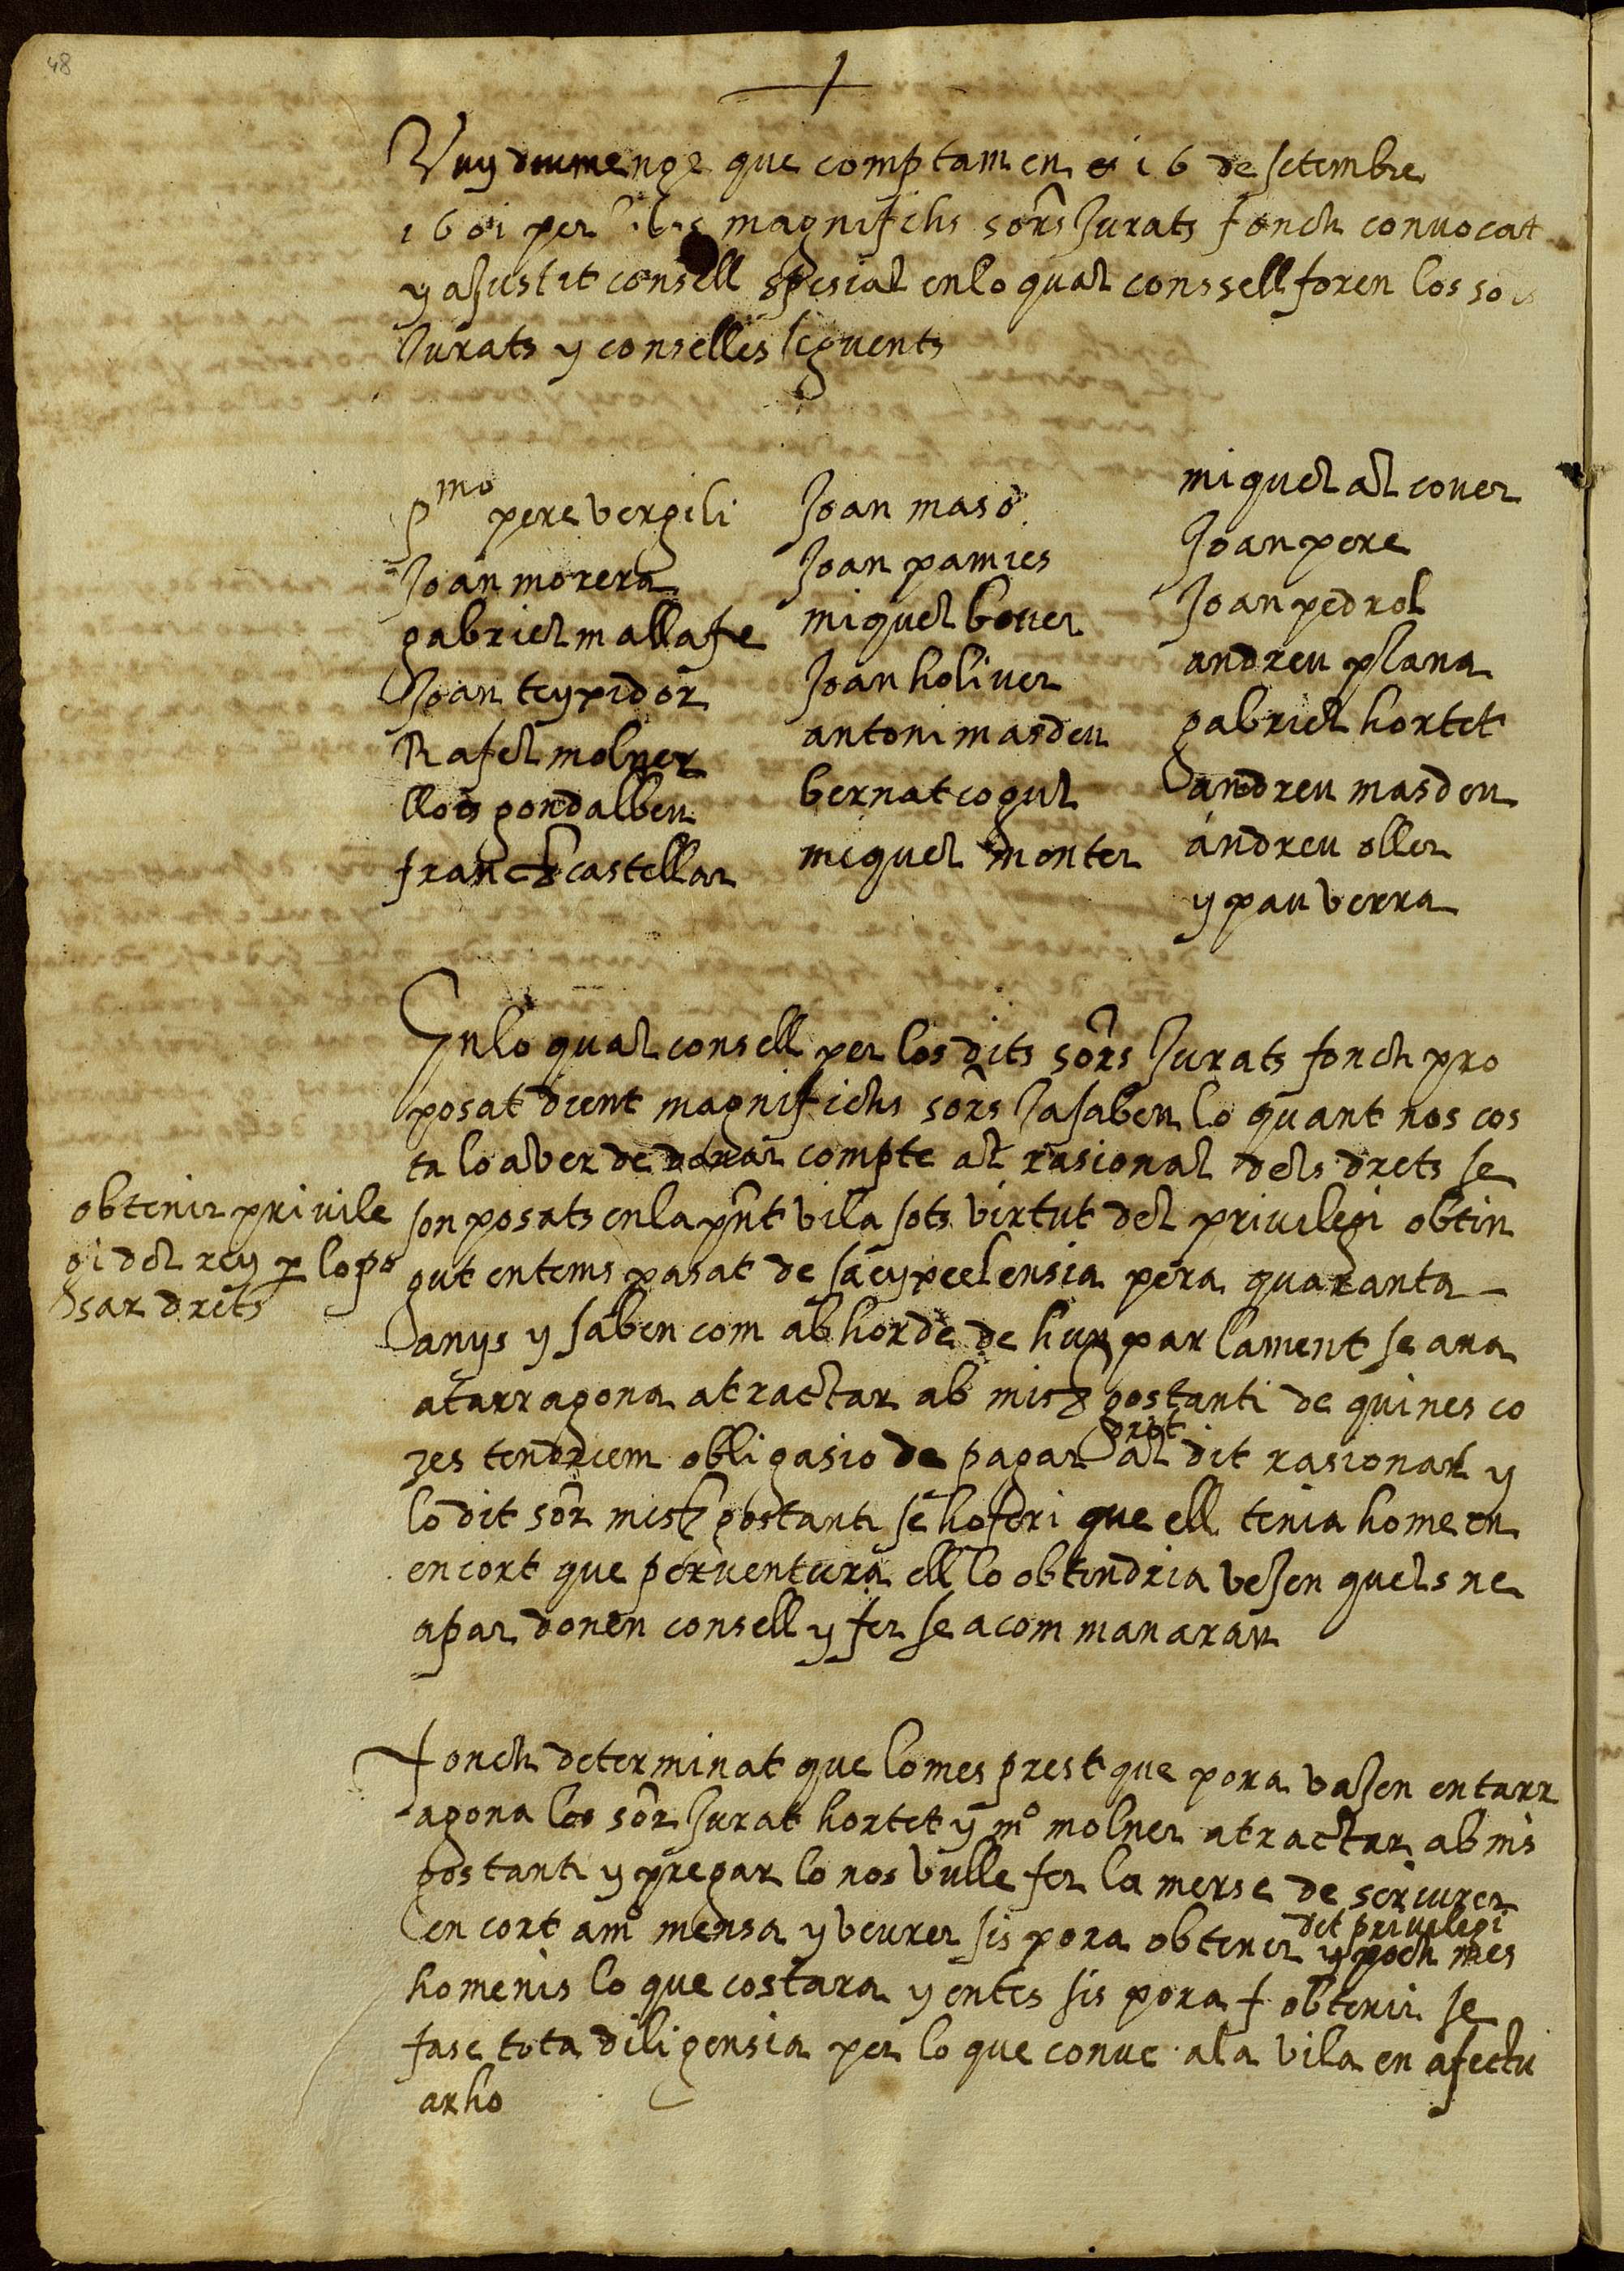 48
+
Vuy diumenge que comptam en 16 de setembre
1601 per los magnifichs sors Jurats fonch convocat
y ajustit consell spesial en lo qual conssell foren los sors
Jurats y conselles seguents
pmo pere vergili
Joan morera
gabriel mallafe
Joan teypidor
Rafel molner
llois gondalbeu
franch castellar
Joan maso
Joan pamies
miquel bover
Joan holiver
antoni masdeu
bernat cogul
miquel monter
miquel alcover
Joan pere
Joan pedrol
andreu plana
gabriel hortet
andreu masdeu
andreu oller
y pau verra
En lo qual consell per los dits sors Jurats fonch pro
posat dient magnifichs sors Ja saben lo quant nos cos
ta lo aver de donar compte al rasional dels drets se
son posats en la pnt vila sots virtut del privilegi obtin
gut en tems pasat de sa eypcelensia pera quaranta
anys y saben com ab horde de hun parlament se ana
a tarragona a tractar ab mis gostanti de quines co
ses tendriem obligasio de pagar dret al dit rasional y
lo dit sor mis gostanti se hoferi que ell tenia home en
en cort que perventura ell lo obtendria vejen quels ne
apar donen consell y fer se a com manaran
obtenir privile
gi del rey per lo po
sar drets
Fonch determinat que lo mes prest que pora vajen en tarr
agona los sor Jurat hortet y mo molner a tractar ab mis
gostanti y pregar lo nos vulle fer la merse de scriurer
en cort a mo mensa y veurer sis pora obtenir dit privilegi y poch mes
homenis lo que costara y entes sis pora obtenir se
fase tota diligensia per lo que conve a la vila en afectu
arho